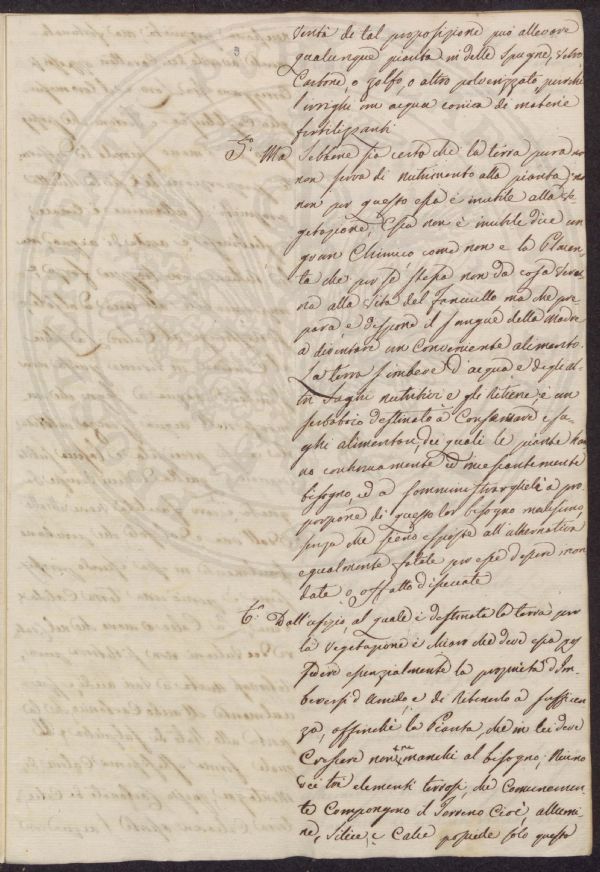 verità di tal proposizione può allevare
qualunque pianta in delle Spugne, Vetro
Carbone, o zolfo, o altro polverizzato, purchè
l'irrighi con acqua carica di materie
fertilizzanti
5.° Ma Sebbene sia certo che la terra pura
non serva di nutrimento alla pianta,
non per questo essa è inutile alla ve
getazione, Essa non è inutile dice un
gran Chimico, come non è la Placen
ta che per se stessa non da cosa veru
na alla vita del fanciullo ma che pre
para e dispone il sangue della Madre
a diventare un conveniente alimento.
La terra s'imbeve d'acqua e degli al
tri Sughi nutritivi e gli ritiene, è un
serbatoio destinato a Conservare i su
ghi alimentari, dei quali le piante han
no continuamente ed incessantemente
bisogno, ed a somministrarglieli a pro
porzione di questo lor bisogno medesimo,
senza che sieno esposte all'alternativa
egualmente fatale per esse d'essere inon
date o affatto disseccate
6.° Dall'ufizio, al quale è destinata la terra per
la vegetazione è chiaro che deve essa pos
sedere essenzialmente la proprietà d'Im
beversi d'Umido, e di Ritenerlo a sufficien
za, affinchè la Pianta, che in lei deve
Crescere non ne manchi al bisogno, Niuno
dei tre elementi terrosi, che Comunemen
te Compongono il Terreno Cioè, allumi
ne, Silice, e Calce possiede solo questa